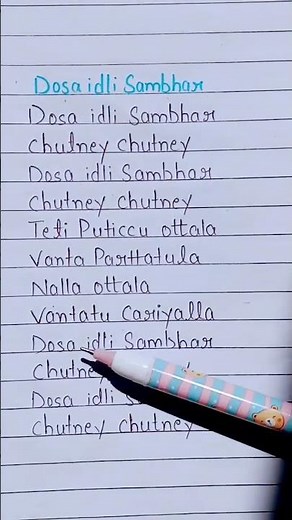 Dosa idli Sambhar
Dosa idli Sambhar
Chutney Chutney
Dosa idli Sambhar
Chutney Chutney
Teti Puticcu ottala
Vanta Parttatula
Nalla ottala
Vantatu Cariyalla
Dosa idli Sambhar
Chutney
Dosa idli
Chutney Chutney